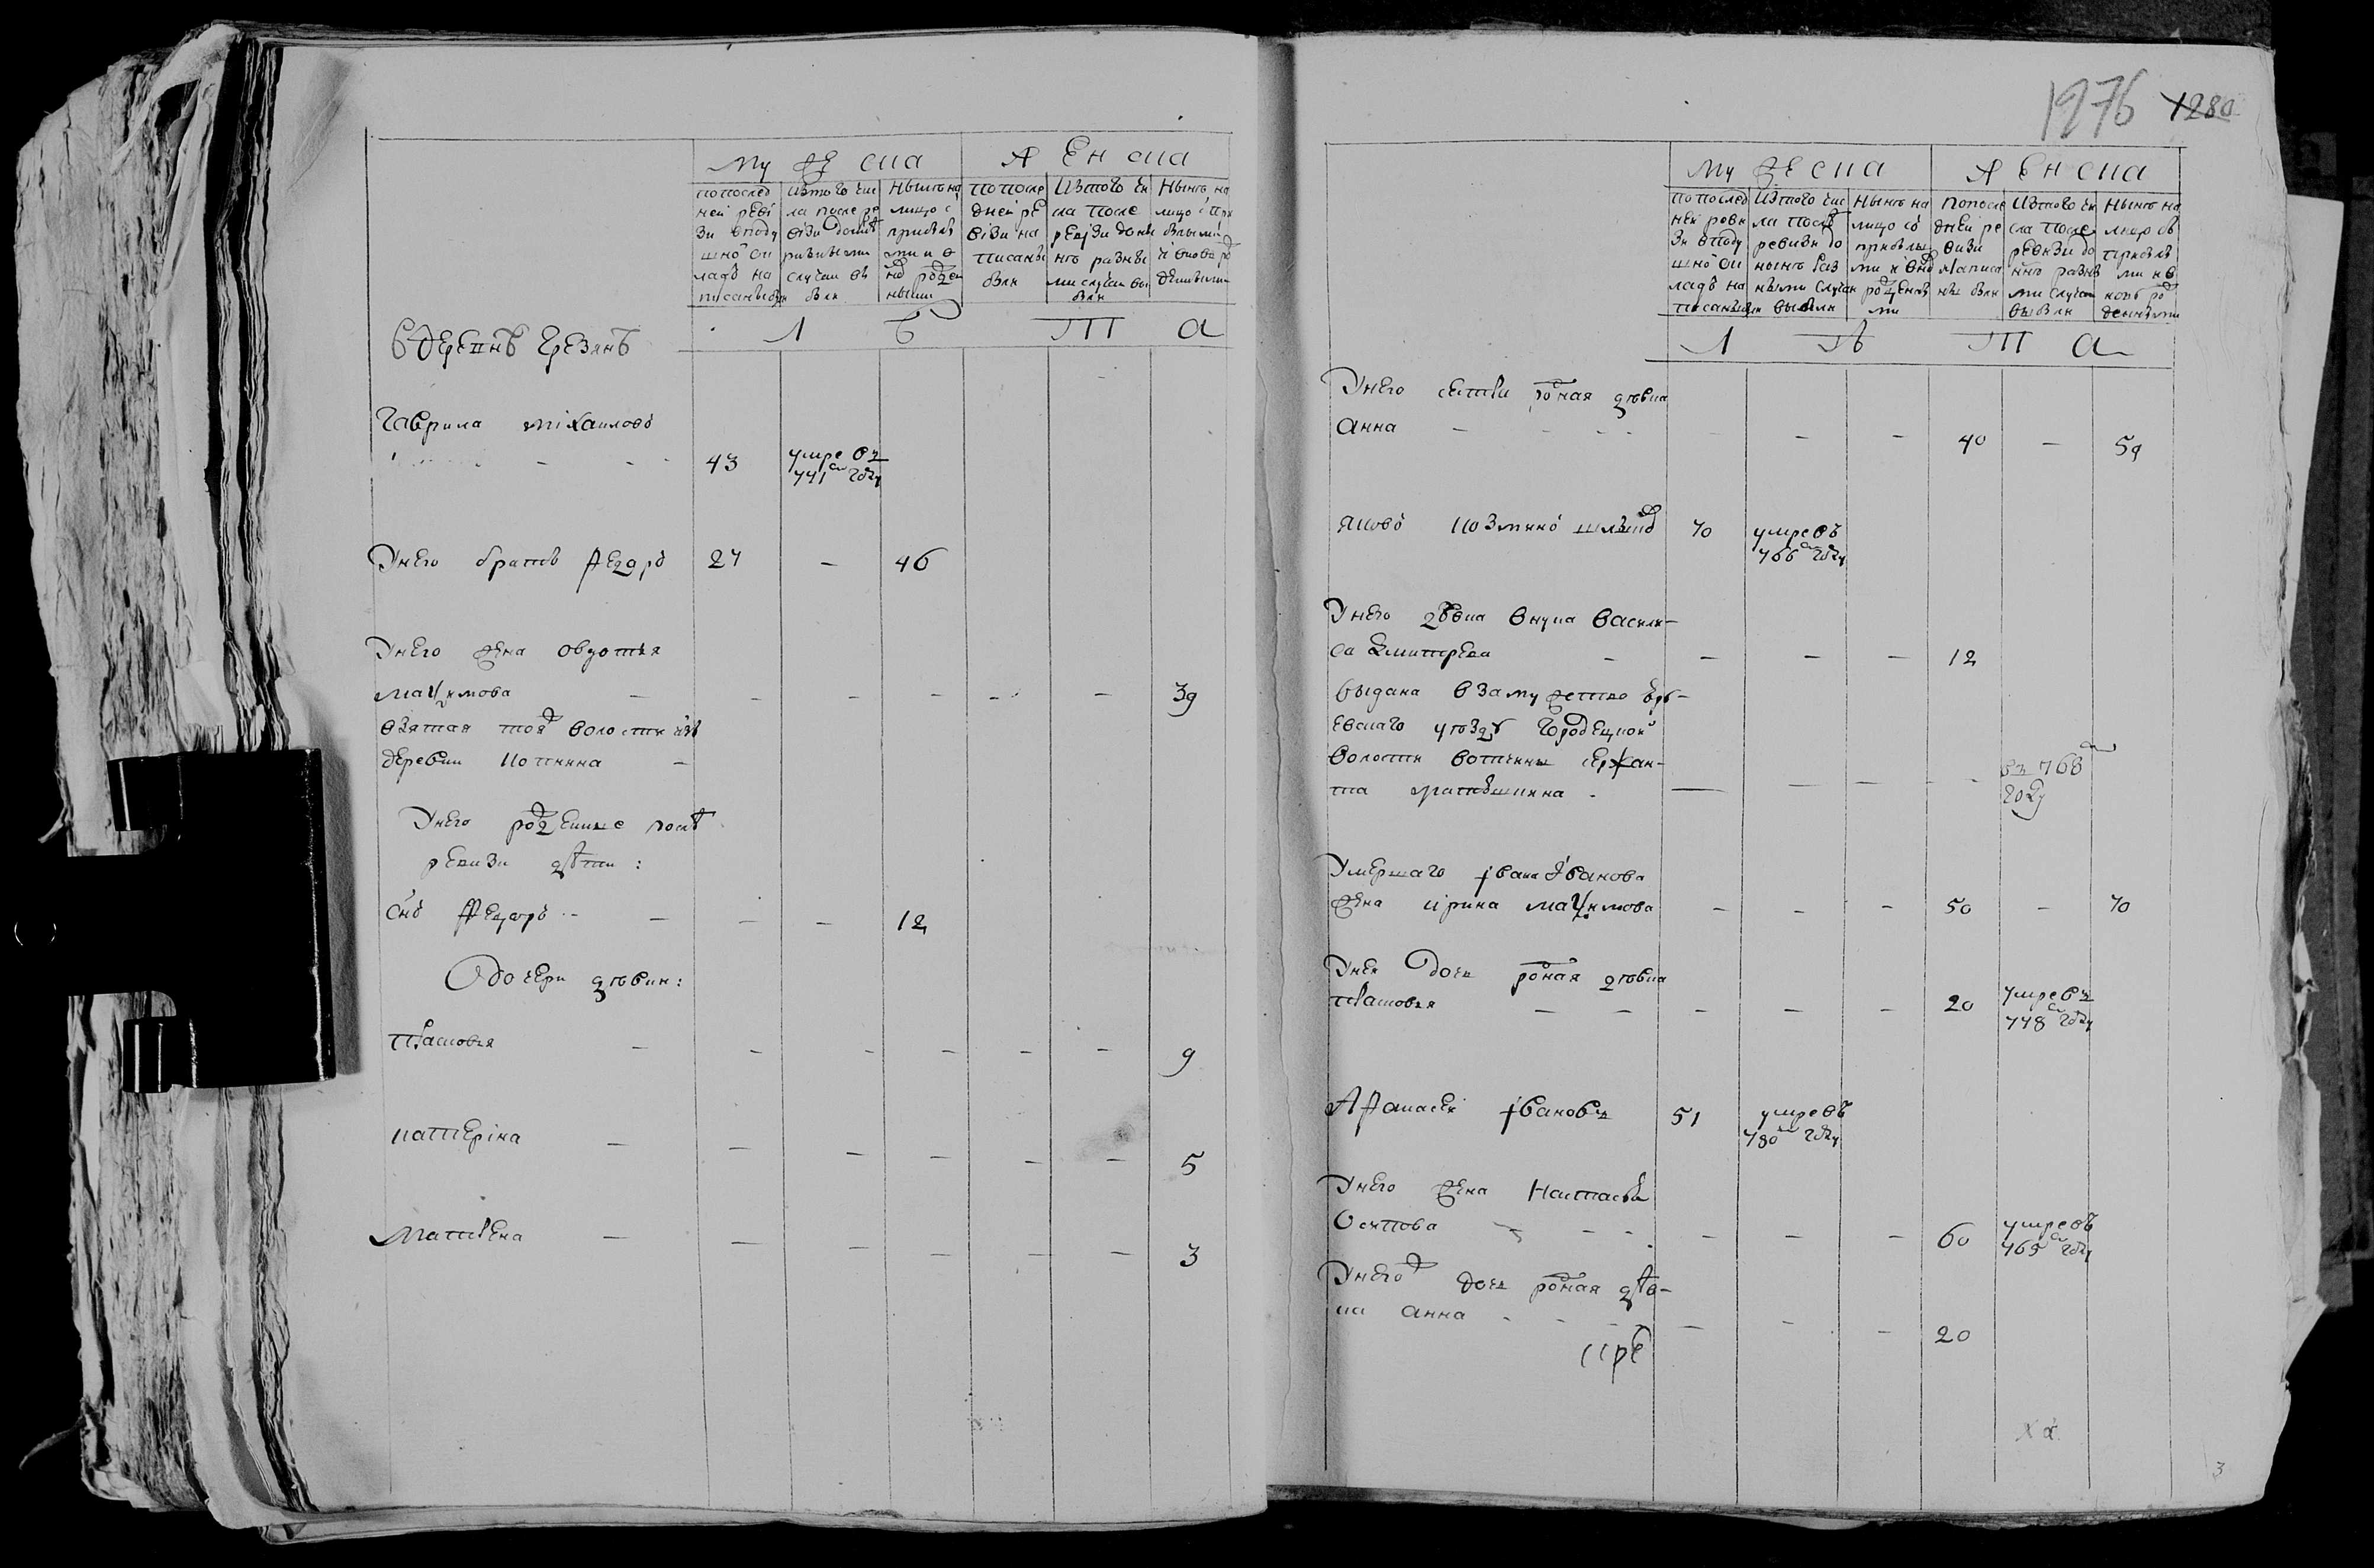 Му жеска
Жен ска
по послед
ней реви
зи в поду
шно ок
ладъ на
писаны были
из того чис
ла после ре
визи
разными
случаи вы
были
ныне на
лицо с
прибыл
ми и в
но рожден
ными
по после
дней ре
визи на
писаны
были
из того чи
сла после
ревизи до ны
не разны
ми случаи вы
были
ныне на
лицо с при
былыми
и внов ро
жденными
Л Ѣ Т А
в деревнѣ Ерезинѣ
Гаврила михаиловъ
43 умре въ
741м году
У него братъ Федоръ 27 – 46
У него жена овдотья
максимова – – – – – – 39
взятая той волости изъ
деревни
У него рожденные послѣ
ревизи дѣти:
снъ Федоръ – – – 12
дочери дѣвки:
– – – – – – 9
катеріна – – – – – – 5
Матрена – – – – – – 3
1976 1280
Му жеска
Женска
по послед
ней реви
зи в поду
шно ок
ладъ на
писаны были
из того чис
ла послѣ
ревизи до
нынѣ раз
ными случаи
выбыли
ныне на
лицо съ
прибылы
ми и вно
рожденны
ми
по после
дней ре
визи
написа
ны были
из того чи
сла после
ревизи до
нне разны
ми случаи
выбыли
ныне на
лицо съ
прибылы
ми и в
новь ро
жденными
Л Ѣ Т А
У него сестра роная дѣвка
анна – – – – – 40 – 59
яковъ козминъ 70 умре въ
766м году
У него дѣвка внука васили-
са дмитрева – – – – 12
выдана в замужство Юрь-
евскаго уѣзду Городецкой
волости вотчины сержан-
та – – – – въ 768м
году
Умершаго івана Іванова
жена ирина максимова – – – 50 – 70
У нея дочь роная дѣвка
– – – – – 20 умре въ
748м году
Афанасей івановъ 51 умре въ
780м году
У него жена Настасья
Осипова – – – – – 60 умре въ
765м году
У него дочь роная дѣв-
ка анна – – – – – 20